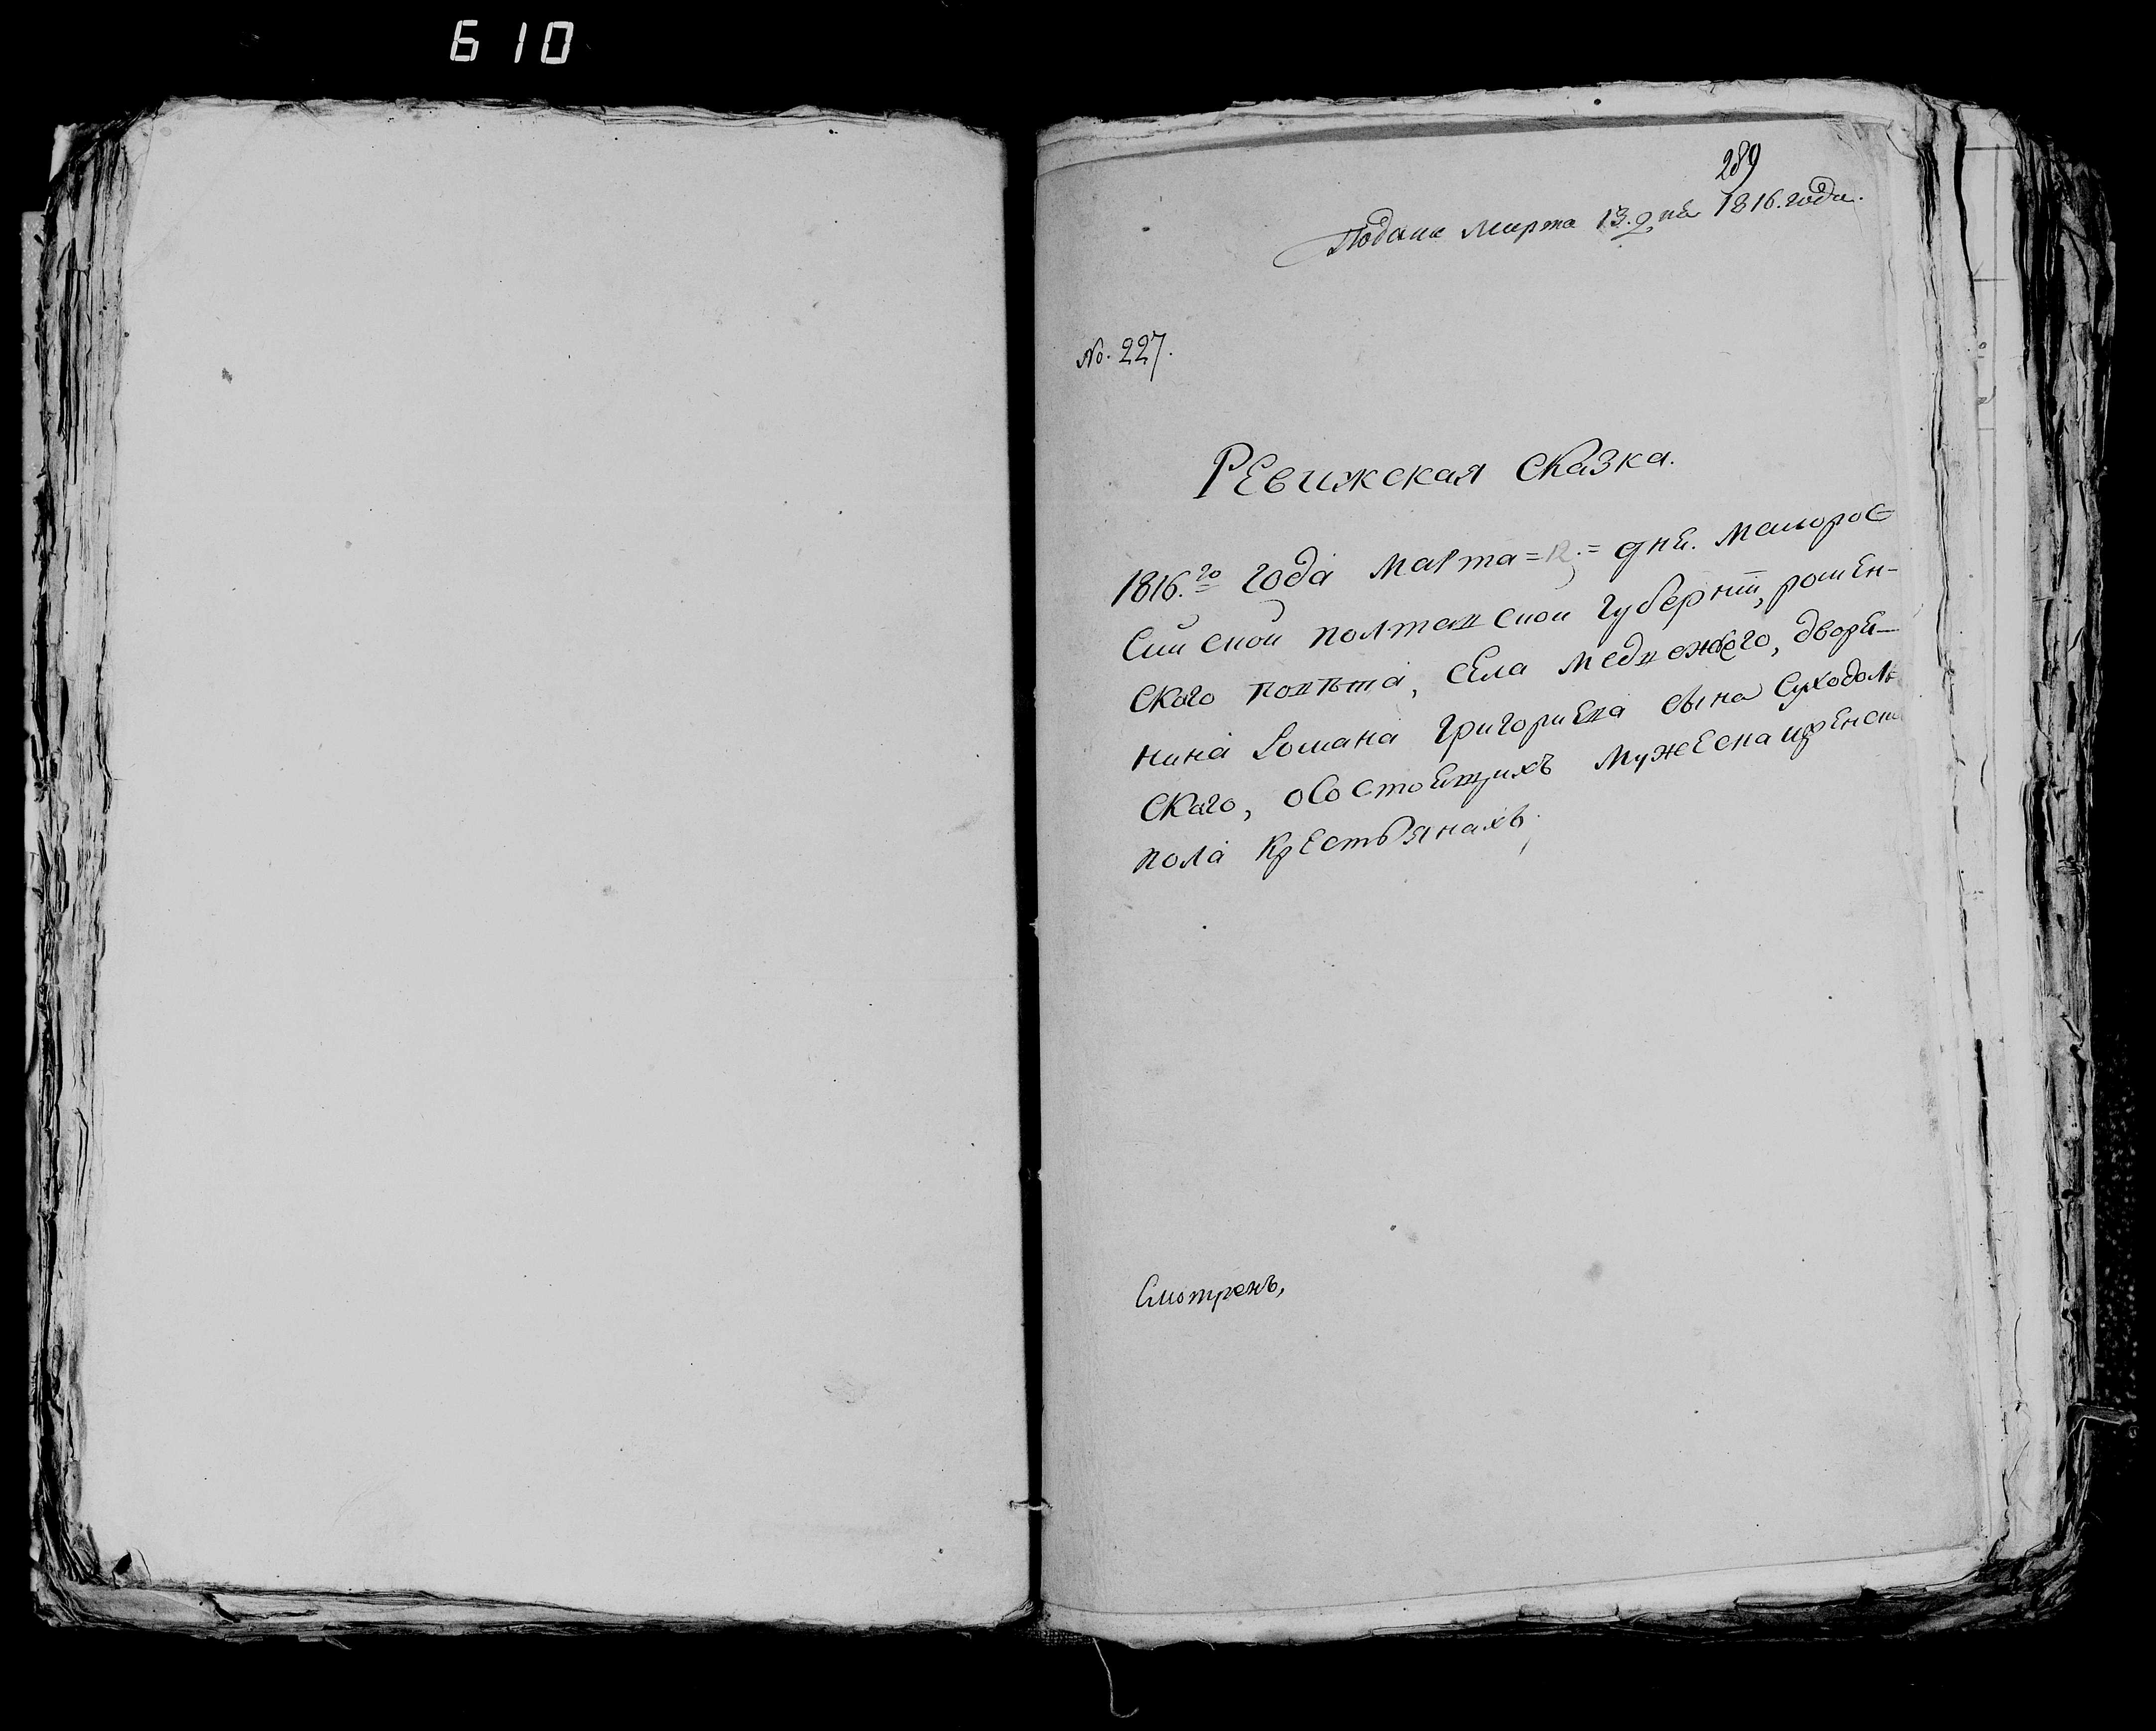 610
289
Подана Марта 13. дня 1816. года.
No. 227.
Ревижская сказка.
1816.го года Марта =12.= дня. Малорос
сийской полтавской губернии, ромен-
ского повѣта, села медвежого, дворя-
нина Романа Григориева сына Суходоль
ского, осостоящихъ мужеска иженска
пола крестьянахъ.
Смотренъ,